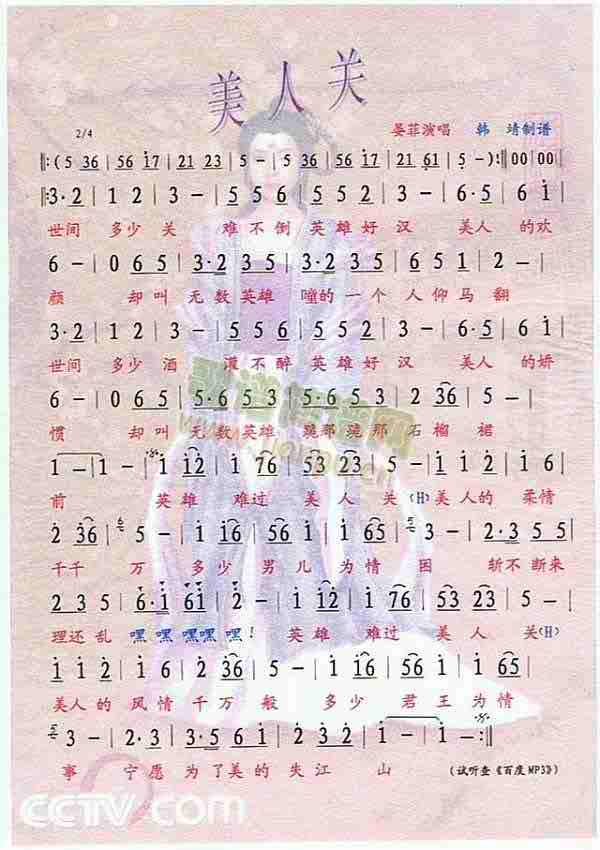 美人关
2/4
晏菲演唱 韩 靖制谱
‖:(5 36 | 56 i7 | 21 23 | 5 - | 5 36 | 56 i7 | 21 61 | 5 - ):‖ 00 | 00 |
‖:3·2 | 1 2 | 3 - | 5 5 6 | 5 5 2 | 3 - | 6·5 | 6 i |
世间 多少 关 难不倒 英雄好 汉 美人 的欢
6 - | 0 65 | 3·2 3 5 | 3·2 3 5 | 6 5 1 | 2 - |
颜 却叫 无数英雄 瞳的一个 人仰马 翻
3·2 | 1 2 | 3 - | 5 5 6 | 5 5 2 | 3 - | 6·5 | 6 i |
世间 多少 酒 灌不醉 英雄好 汉 美人 的娇
6 - | 0 65 | 5·6 5 3 | 5·6 5 3 | 2 36 | 5 - |
惯 却叫 无数英雄 跪那跪那 石榴 裙
1 - | 1 - | i i2 | i 76 | 53 23 | 5 - | i i 2 | i 6 |
前 英雄 难过 美人 关(H)美人的 柔情
2 36 | 5 - | i i6 | 56 i | 3 - | 2·3 5 5 |
千千 万 多少 男儿 为情 困 斩不断来
2 3 5 | 6·i 6i | 2 - | i i2 | i 76 | 53 23 | 5 - |
理还乱 嘿 嘿 嘿嘿 嘿! 英雄 难过 美人 关(H)
i i 2 | i 6 | 2 36 | 5 - | i i6 | 56 i | i 65 |
美人的 风情 千万 般 多少 君王 为情
3 - | 2·3 | 3 5 6 i | 2 3 2 | i - | i - :‖
事 宁愿 为了美的 失江 山
(试听查《百度MP3》)
CCTV.com